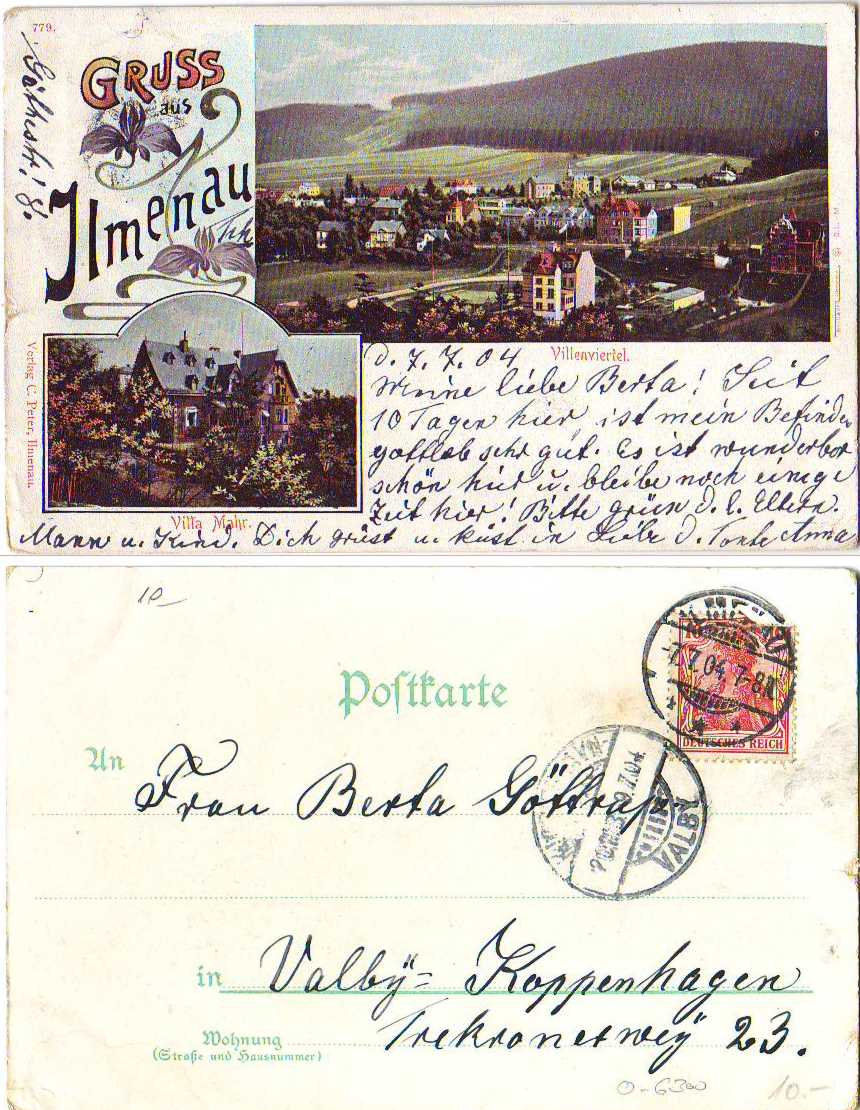 779.
Göthestr. 8.
GRUSS
aus
Ilmenau
Thür.
Verlag C. Peter, Ilmenau.
Villenviertel.
Villa Mahr.
d. 7. 7. 04
Meine liebe Berta! Seit
10 Tagen hier, ist mein Befinden
gottlob sehr gut. Es ist wunderbar
schön hier u. bleibe noch einige
Zeit hier! Bitte grüße d. l. Eltern.
Mann u. Kind. Dich grüst u. küst in Liebe d. Tante Anna
10
Postkarte
7.7.04 7-8N
DEUTSCHES REICH
An
Frau Berta Göttrup
9.7.04
VALBY
in Valby= Koppenhagen
Wohnung
(Straße und Hausnummer)
Trekronerweg 23.
0-6300
10.-